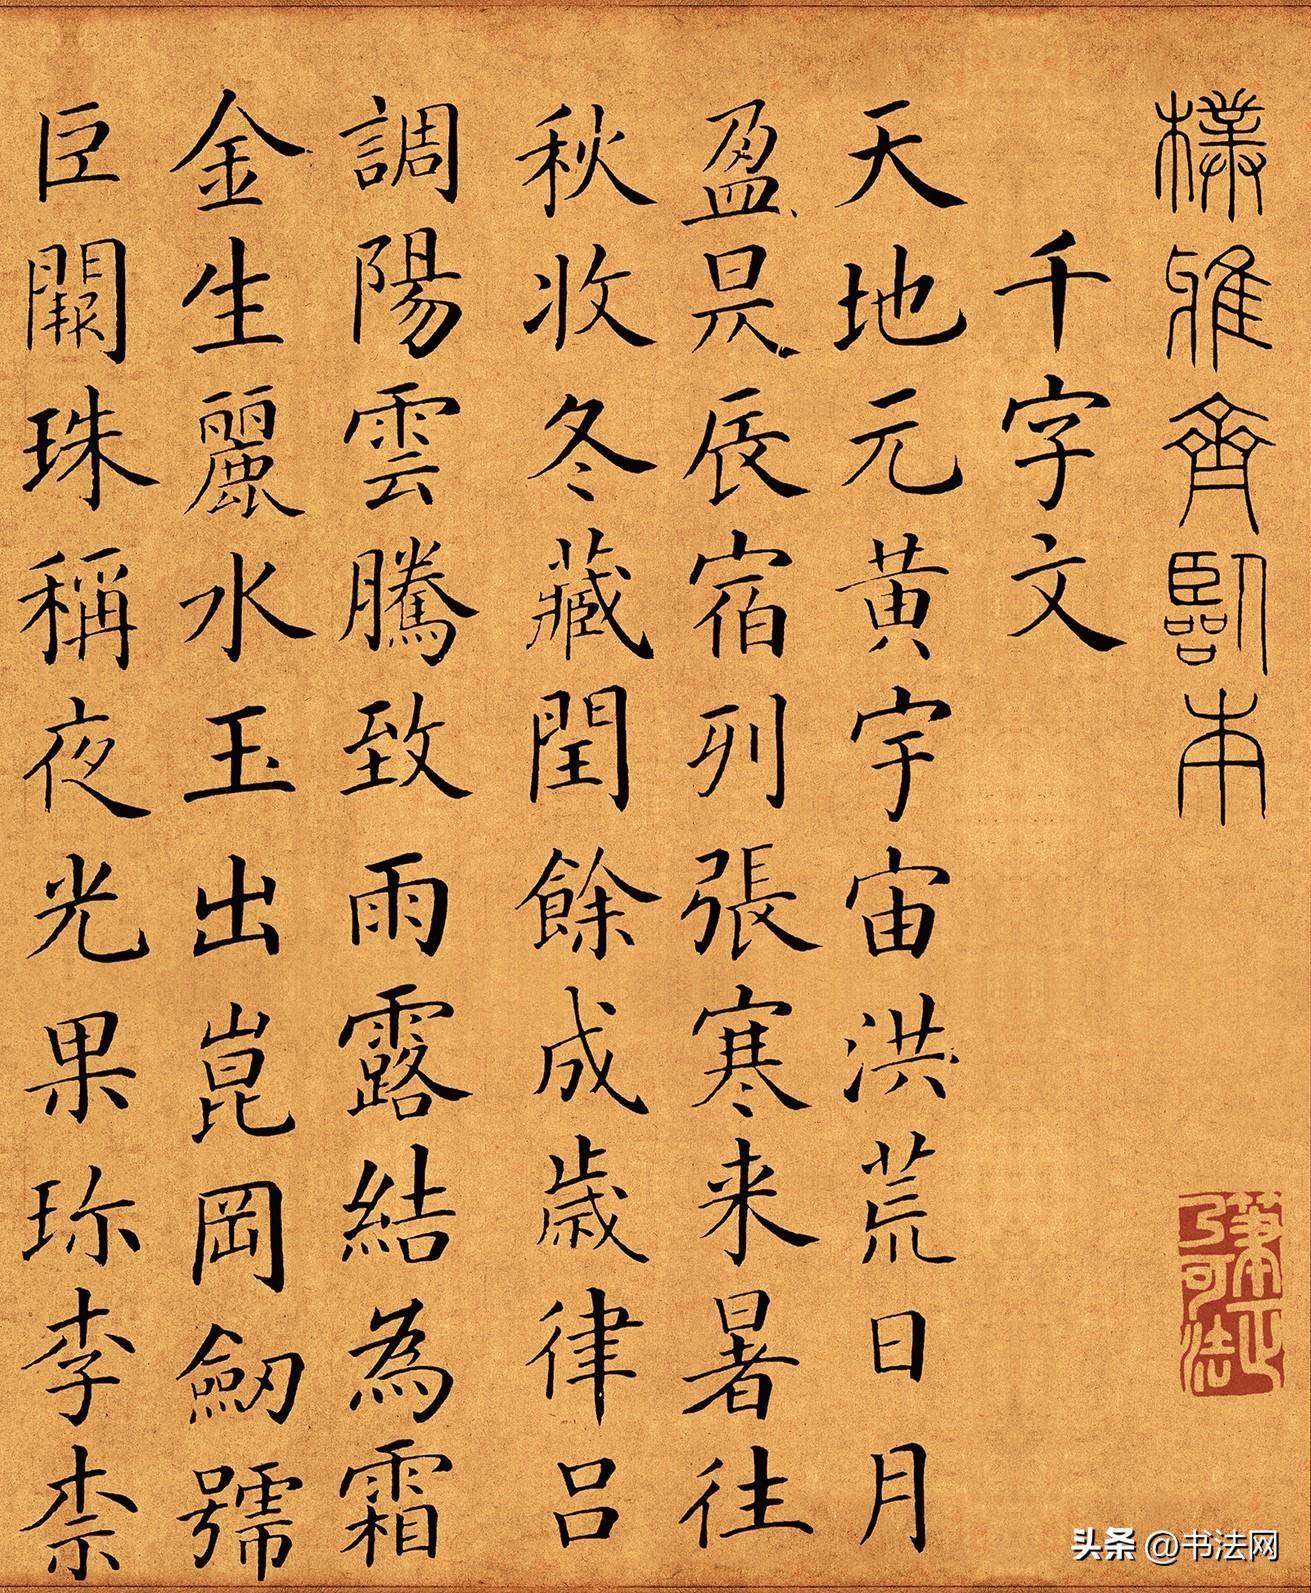 樸雅齊臨本
千字文
天地元黄宇宙洪荒日月
盈昃辰宿列張寒来暑往
秋收冬藏閏餘成歲律吕
調陽雲騰致雨露結為霜
金生麗水玉出崑岡劔號
巨闕珠稱夜光果珎李柰
筆正乃可法
头条 @书法网